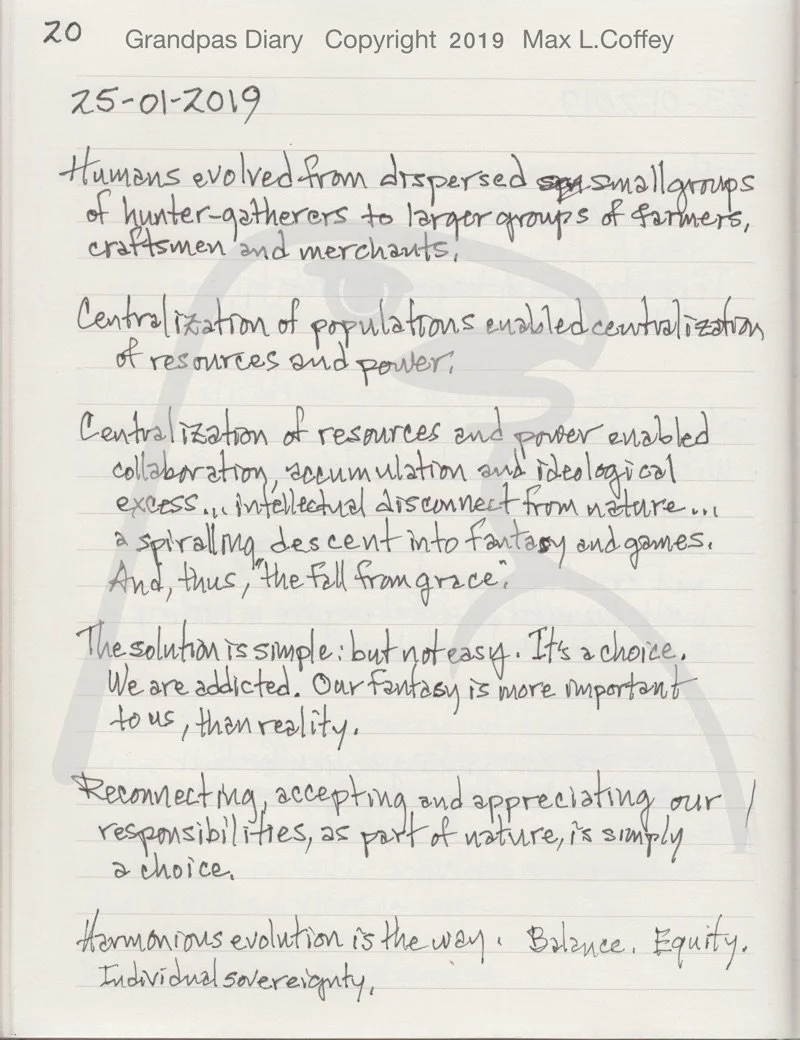 20
Grandpas Diary Copyright 2019 Max L.Coffey
25-01-2019
Humans evolved from dispersed small groups
of hunter-gatherers to larger groups of farmers,
craftsmen and merchants.
Centralization of populations enabled centralization
of resources and power.
Centralization of resources and power enabled
collaboration, accumulation and ideological
excess... intellectual disconnect from nature...
a spiralling descent into fantasy and games.
And, thus, "the fall from grace".
The solution is simple: but not easy. It's a choice.
We are addicted. Our fantasy is more important
to us, than reality.
Reconnecting, accepting and appreciating our
responsibilities, as part of nature, is simply
a choice.
Harmonious evolution is the way. Balance. Equity.
Individual sovereignty.